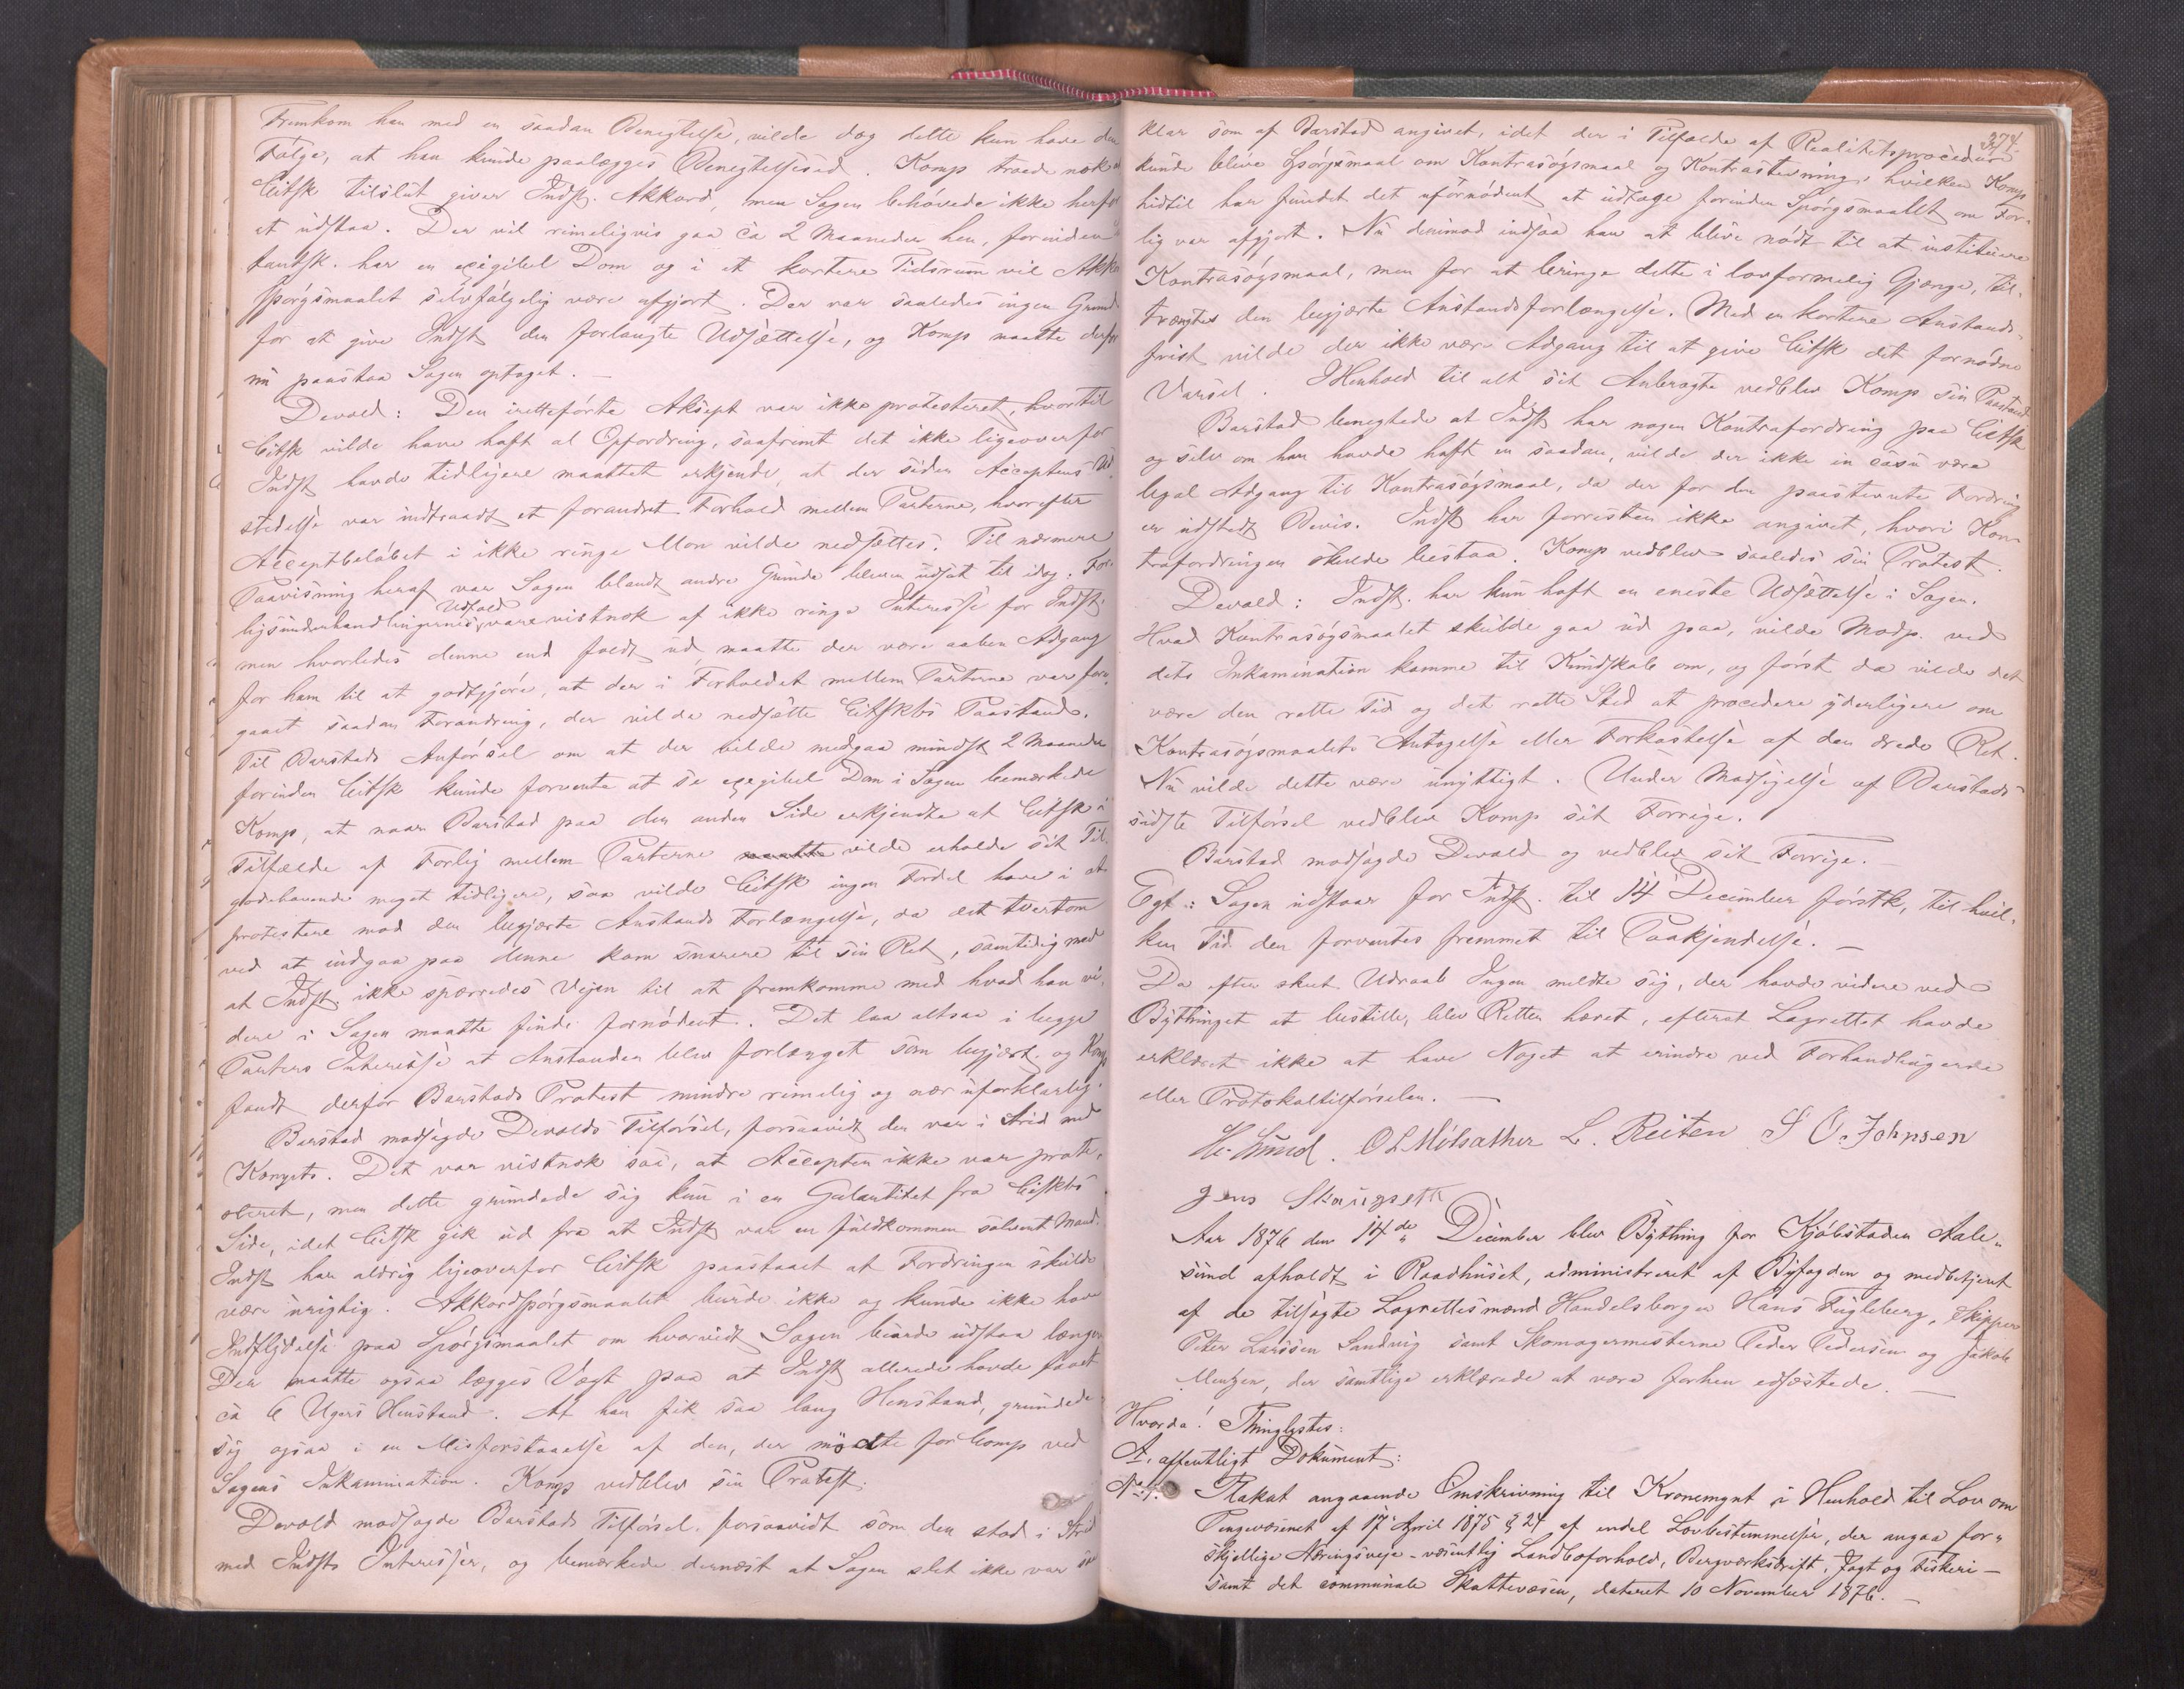 Fremkom han med en saadan Benegtelse, vilde dog dette kun have den
Følge, at han kunde paalægges Benegtelsesed. Komp troede nok at
Citsk tilslut giver Indst. Akkord, men Sagen behøvede ikke herfor
at udstaa. Der vil rimeligvis gaa ca 2 Maaneder hen, forinden
har en exigibel Dom og i et kortere Tidsrum vil Akkord
spørgsmaalet selvfølgelig være afgjort. Der var saaledes ingen Grund
for at give Indst den forlangte Udsættelse, og Komp maatte derfor
nu paastaa Sagen optaget. —
Devold: Den iretteførte Aksept var ikke protesteret, hvortil
Citsk vilde have haft al Opfordring, saafremt det ikke ligeoverfor
Indst havde tidligere maattet erkjende, at der siden Acceptens Ud
stedelse var indtraadt et forandret Forhold mellem Parterne, hvorefter
Acceptbeløbet i ikke ringe Mon vilde nedsættes. Til nærmere
Paavisning heraf var Sagen blandt andre Grunde bleven udsat til idag. For-
ligsunderhandlingernes Udfald var vistnok af ikke ringe Interesse for Indst.
men hvorledes denne end faldt ud maatte der være aaben Adgang
for ham til at godtgjøre, at der i Forholdet mellem Parterne var fore-
gaaet saadan Forandring, der vilde nedsætte Citsktes Paastand.
Til Barstads Anførsel om at der vilde medgaa mindst 2 Maaneder
forinden Citsk kunde forvente at se exegibel Dom i Sagen bemærkede
Komp, at naar Barstad paa den anden Side erkjendte at Citsk i
Tilfælde af Forlig mellem Parterne maatte vilde erholde sit Til-
godehavende meget tidligere, saa vilde Citsk ingen Fordel have i at
protestere mod den begjærte Anstands Forlængelse, da det tvertom
ved at indgaa paa denne kom snarere til sin Ret, samtidig med
at Indst. ikke spærredes Vejen til at fremkomme med hvad han vi-
dere i Sagen maatte finde fornødent. Det laa altsaa i begge
Parters Interesse at Anstanden blev forlænget som begjært og Komp
fandt derfor Barstads Protest mindre rimelig og nær uforklarlig.
Barstad modsagde Devolds Tilførsel, forsaavidt den var i Strid med
. Det var vistnok saa, at Accepten ikke var prote-
steret, men dette grundede sig kun i en Galantitet fra Citsktes
Side, idet Citsk gik ud fra at Indst var en fuldkommen solvent Mand.
Indst har aldrig ligeoverfor Citsk paastaaet at Fordringen skulde
være urigtig. Akkordspørgsmaalet burde ikke og kunde ikke have
Indflydelse paa Spørgsmaalet om hvorvidt Sagen burde udstaa længere
Der maatte ogsaa lægges Vægt paa at Indst allerede havde faaet
ca 6 Ugers Henstand. At han fik saa lang Henstand, grundede
sig ogsaa i en Misforstaaelse af den, der mødte for Comp ved
Sagens Inkamination. Komp vedblev sin Protest.
Devold modsagde Barstads Tilførsel, forsaavidt som den stod i Strid
med Indsts Interesser, og bemærkede dernæst at Sagen slet ikke var saa
374.
klar som af Barstad angivet, idet der i Tilfælde af Realitetsprocedure
kunde blive Spørgsmaal om Kontrasøgsmaal og Kontrastevning, hvilken Komp
hidtil har fundet det ufornødent at udtage forinden Spørgsmaalet om For-
lig var afgjort. Nu derimod indsaa han at blive nødt til at instituere
Kontrasøgsmaal, men for at bringe dette i lovformelig Gjænge, til-
trængtes den begjærte Anstandsforlængelse. Med en kortere Anstands-
frist vilde der ikke være Adgang til at give Citsk det fornødne
Varsel. I Henhold til alt sit Anbragte vedblev Komp sin Paastand
Barstad benegtede at Indst har nogen Kontrafordring paa Citsk
og selv om han havde haft en saadan, vilde der ikke in casu være
legal Adgang til Kontrasøgsmaal, da der for den paastevnte Fordring
er udstedt Bevis. Indst har forresten ikke angivet, hvori Kon-
trafordringen skulde bestaa. Komp vedblev saaledes sin Protest.
Devold: Indst. har kun haft en eneste Udsættelse i Sagen.
Hvad Kontrasøgsmaalet skulde gaa ud paa, vilde Modp. ved
dets Inkamination komme til Kundskab om, og først da vilde det
være den rette Tid og det rette Sted at procedere yderligere om
Kontrasøgsmaalets Antagelse eller Forkastelse af den ærede Ret.
Nu vilde dette være unyttigt. Under Modsigelse af Barstads
sidste Tilførsel vedblev Komp sit Forrige.
Barstad modsagde Devold og vedblev sit Forrige. —
Egt.: Sagen udstaar for Indst. til 14 December førstk, til hvil-
ken Tid den forventes fremmet til Paakjendelse. —
Da efter skeet Udraab Ingen meldte sig, der havde videre ved
Bythinget at bestille, blev Retten hævet, efterat Lagrettet havde
erklæret ikke at have Noget at erindre ved Forhandlingerne
eller Protokoltilførselen. —
L. Reiten S O. Johnsen
Jens
Aar 1876 den 14de December blev Bything for Kjøbstaden Aale-
sund afholdt i Raadhuset, administreret af Byfogden og medbetjent
af de tilsagte Lagrettesmænd Handelsborger Hans Fugleberg, Skipper
Peter Larssen Sandvig samt Skomagermesterne Peder Pedersen og Jakob
, der samtlige erklærede at være forhen edfæstede. —
Hvorda! Thinglystes:
A, offentligt Dokument:
No 1. Plakat angaaende Omskrivning til Kronemynt i Henhold til Lov om
Pengevæsenet af 17 April 1875 § 24 af endel Lovbestemmelser, der angaa for-
skjellige Næringsveje – væsentlig Landboforhold, Bergværksdrift, Jagt og Fiskeri –
samt det communale Skattevæsen, dateret 10 November 1876. —